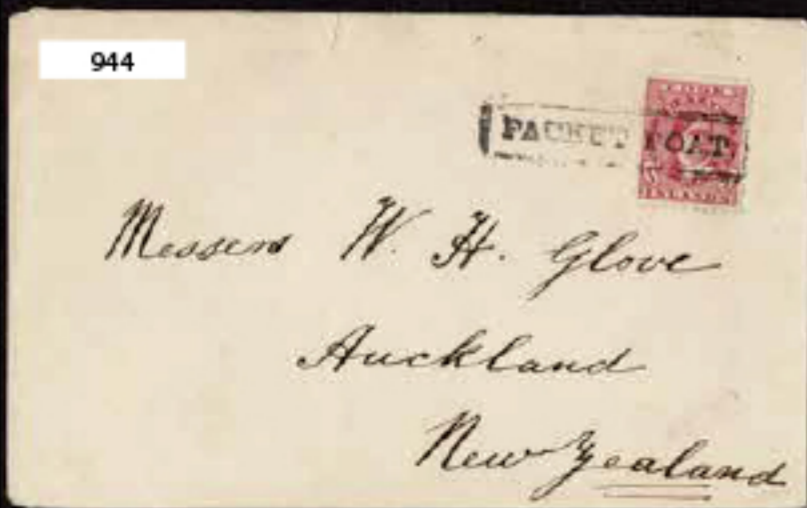 944
COOK
ISLANDS
PACKET BOAT
Messers W. H. Glove
Auckland
New Zealand